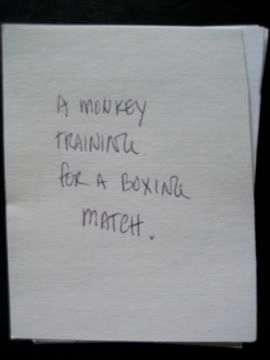 A MONKEY
TRAINING
FOR A BOXING
MATCH.